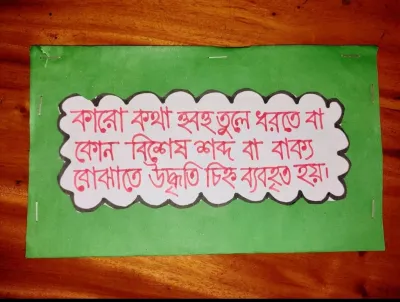 কারো কথা হুবহু তুলে ধরতে বা
কোন বিশেষ শব্দ বা বাক্য
বোঝাতে উদ্ধৃতি চিহ্ন ব্যবহৃত হয়।